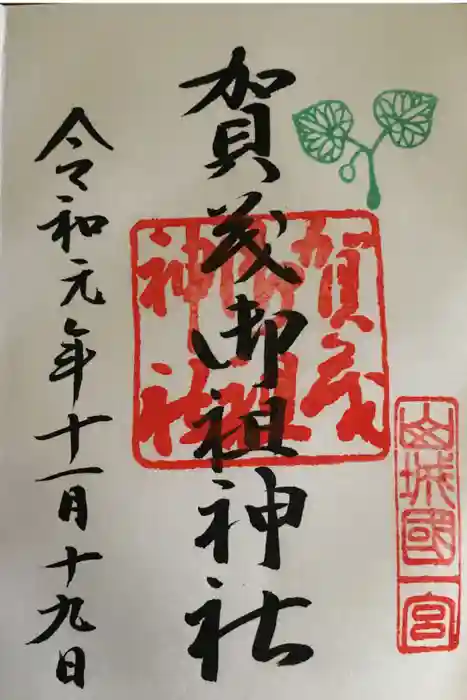 山城國一宮
賀茂御祖神社
賀茂御祖神社
令和元年十一月十九日